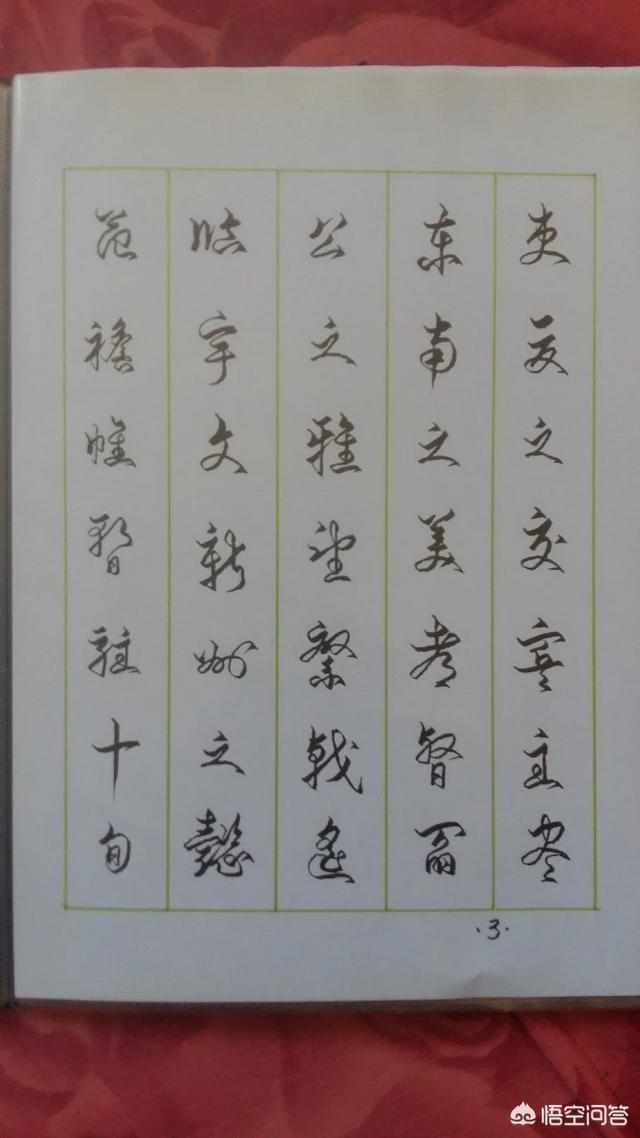 夷夏之交宾主尽
东南之美都督阎
公之雅望棨戟遥
临宇文新州之懿
范襜帷暂驻十旬
·3·
悟空问答